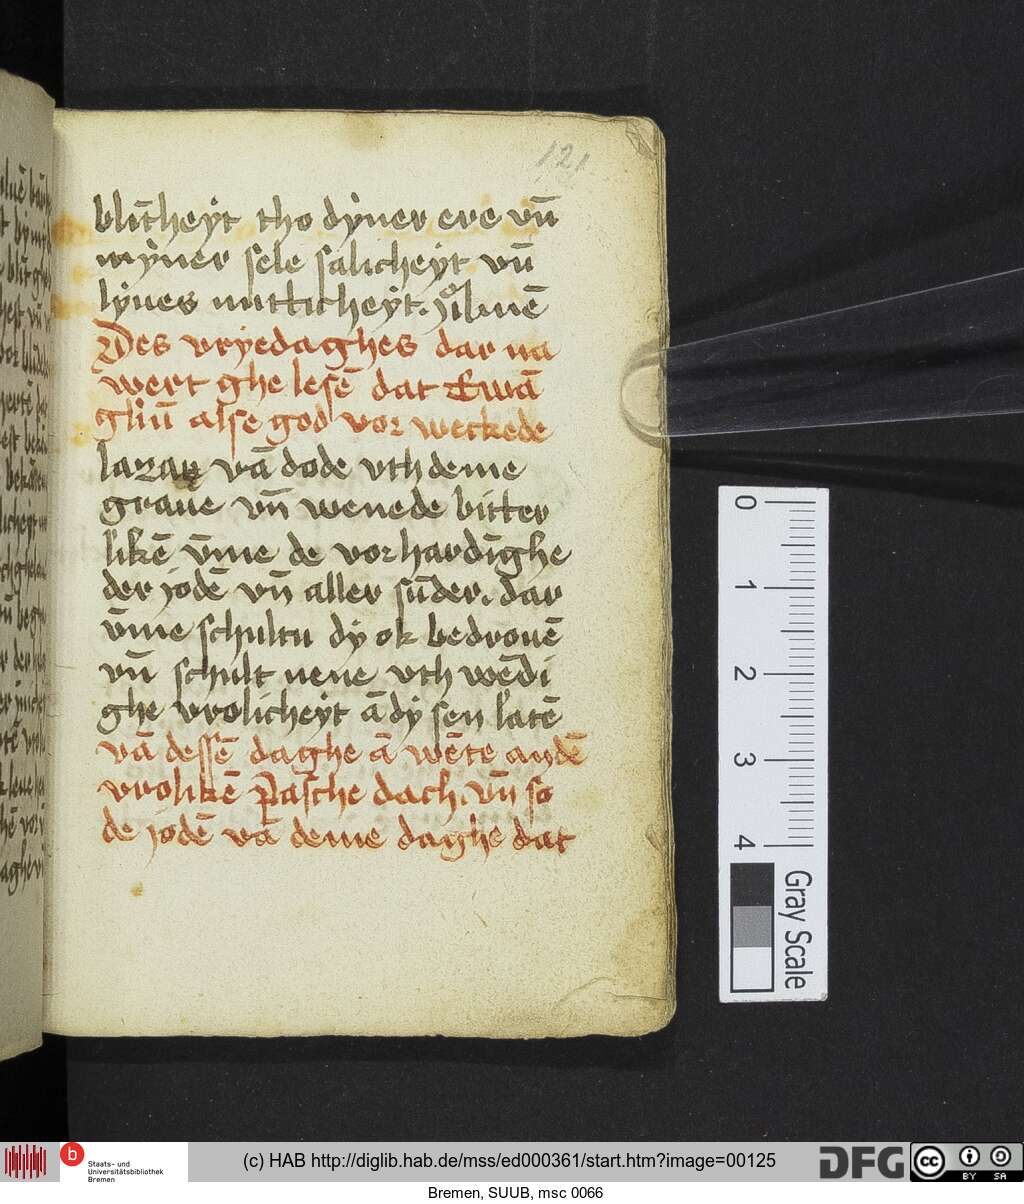 121
blīt̄heẏt tho dẏner ere vn̄
mẏner sele salicheẏt vn̄
lẏues nutticheẏt.
Des vryedaghes dar na
wert ghe lesē dat Ewā
gliū alse god vor weckede
lazarꝰ vā dode vth deme
graue vn̄ wenede bitter
likē v̄me de vor hardīghe
der jodē vn̄ aller sūder. dar
v̄me schultu dy ok bedrouē
vn̄ schult nene vth wēdi
ghe vrolicheẏt ā dẏ sen latē
vā dessē daghe ā wēte andē
vrolikē Pasche dach. vn̄ so
de jodē vā deme daghe dat
0
1
2
3
4
Gray Scale
b
Staats- und
Universitätsbibliothek
Bremen
(c) HAB http://diglib.hab.de/mss/ed000361/start.htm?image=00125
DFG
cc
BY SA
Bremen, SUUB, msc 0066